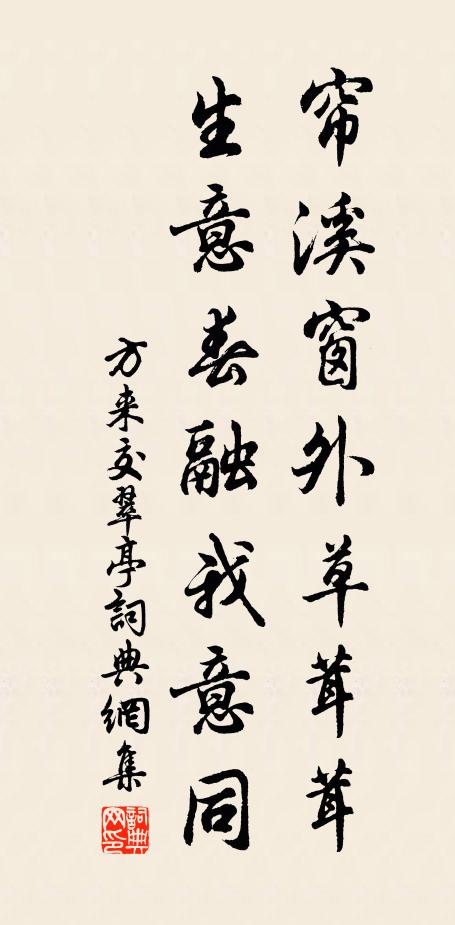 帘溪窗外草茸茸
生意春融我意同
方来交翠亭詞典網集
詞典网印